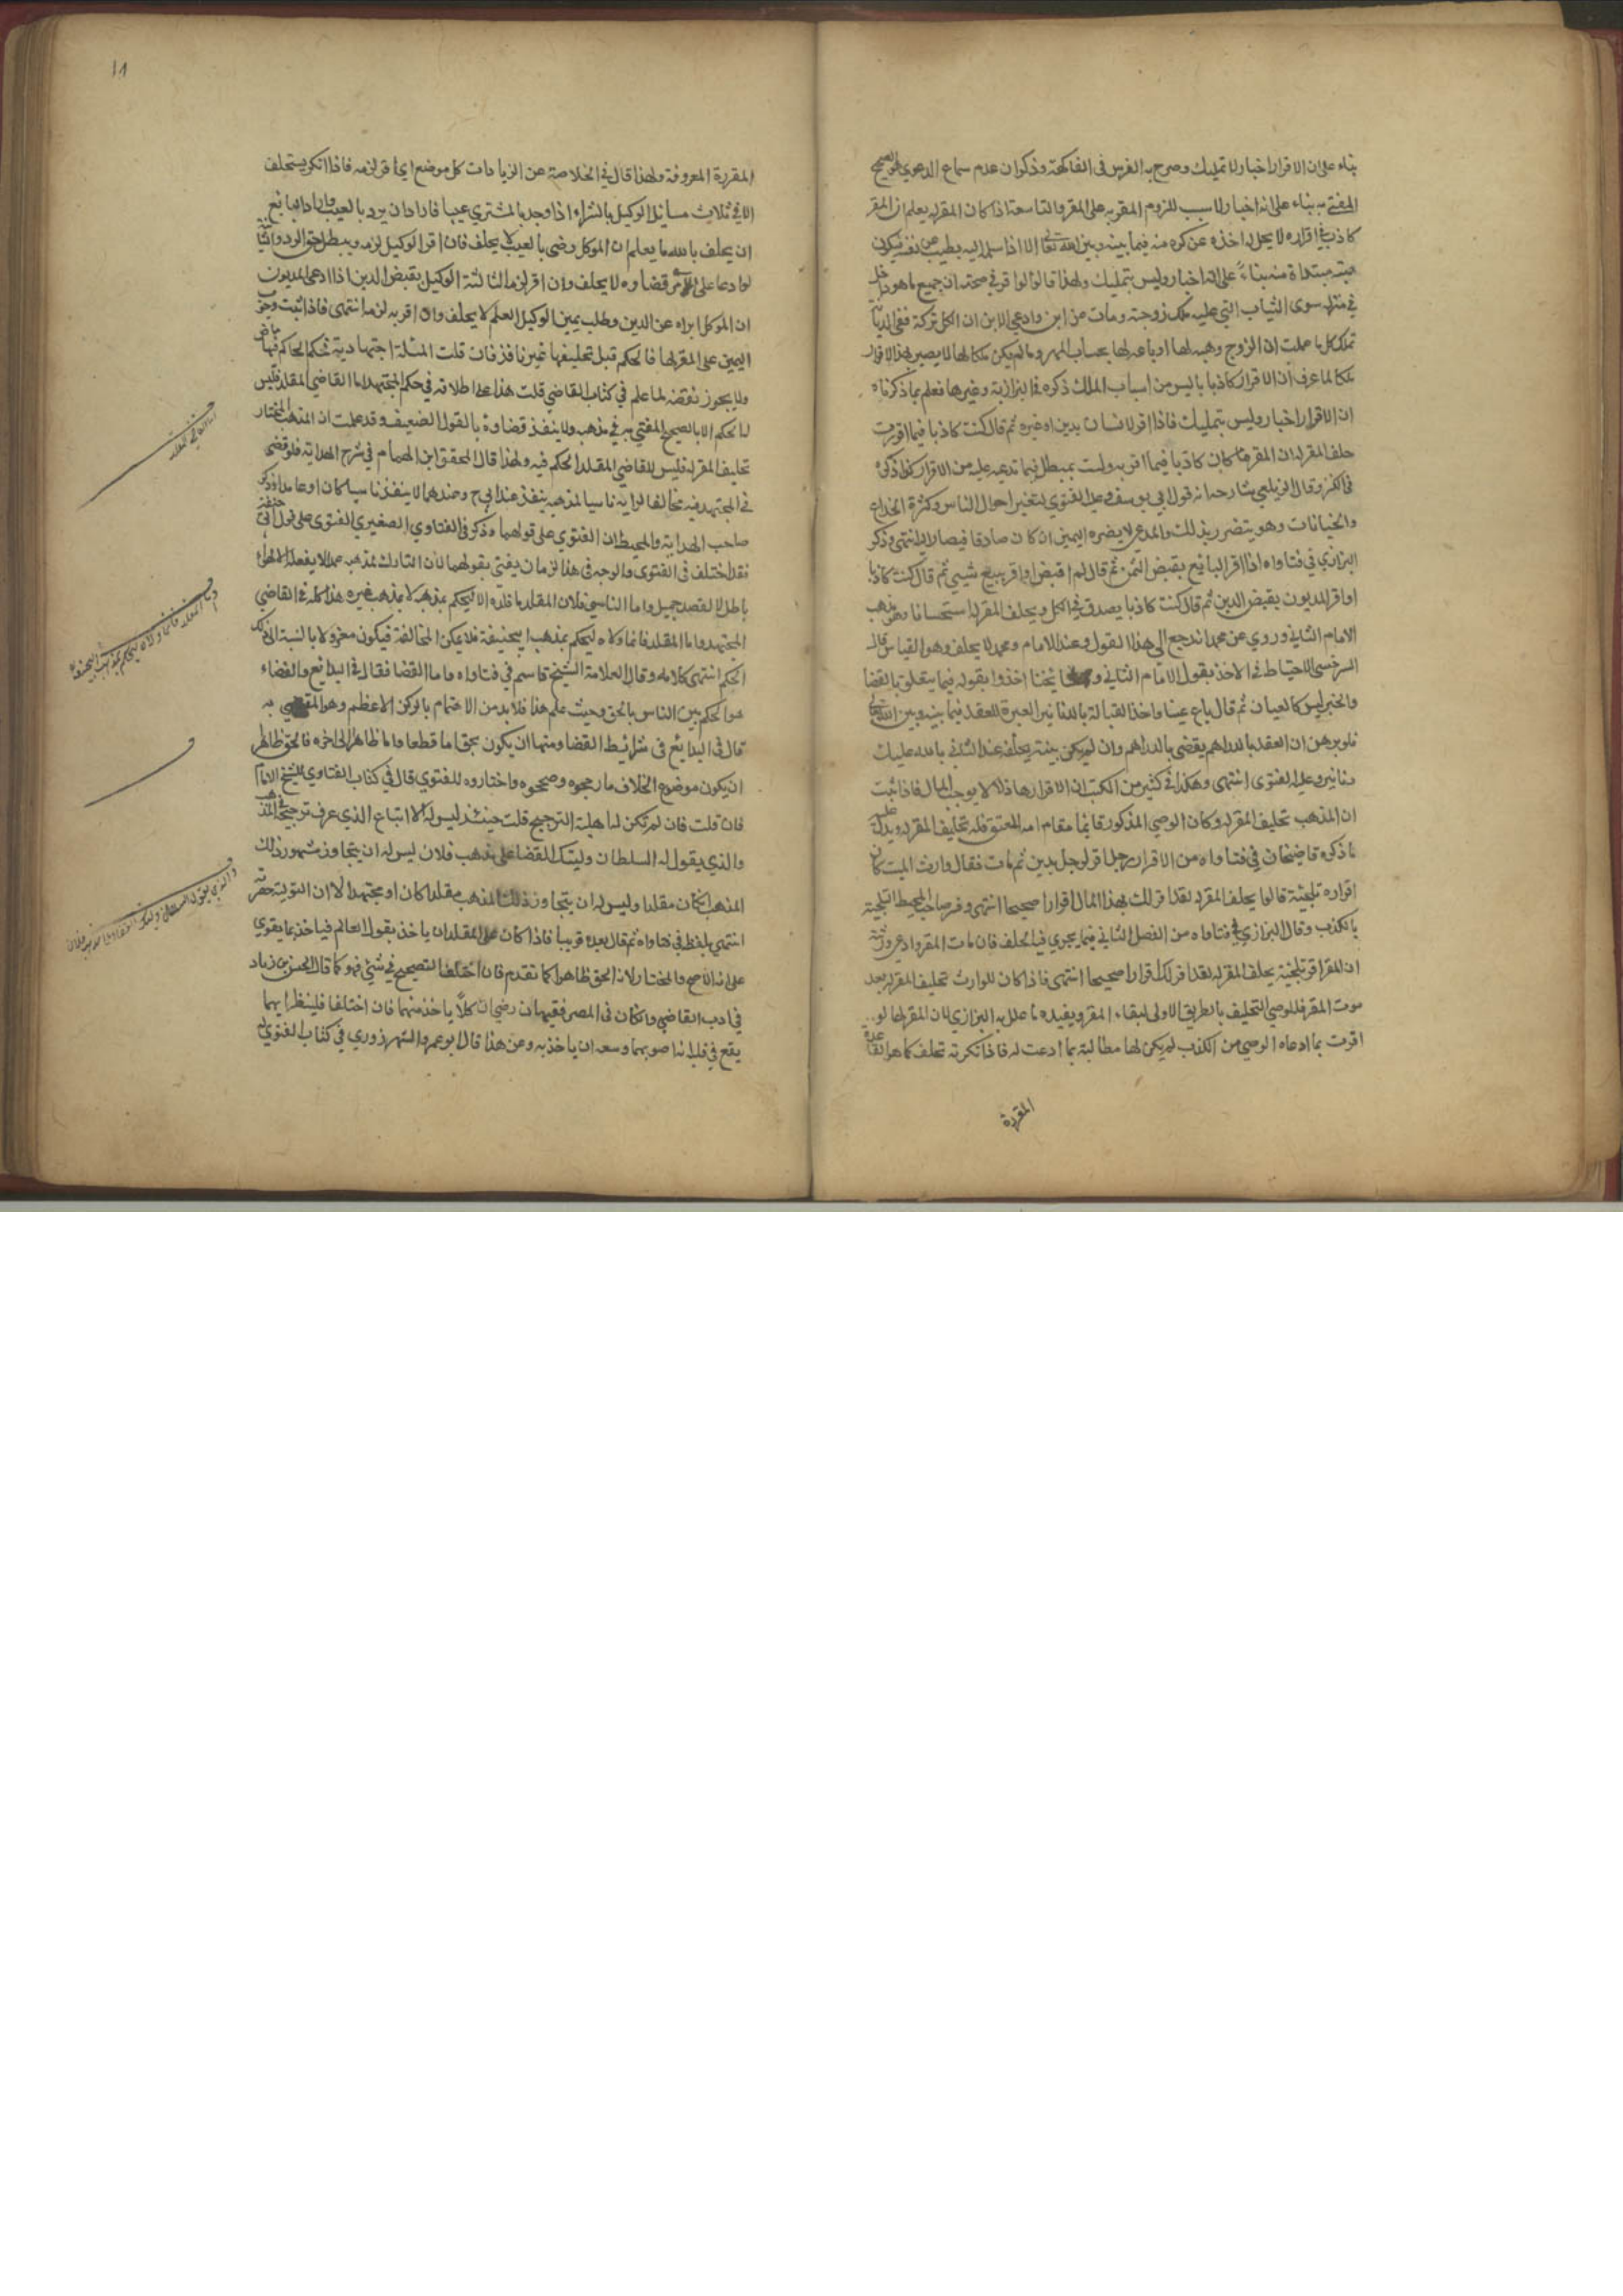 بناء على ان الاقرار اخبار لا تمليك وصرح به الغرس في الفاكهة وذكر ان عدم سماع الدعوي هو الصحيح
المفتى به بناء على انه اخبار ولا سبب للزوم المقر به على المقر والتاسعة اذا كان المقر له يعلم ان المقر
كاذب في اقراره لا يحل له اخذه عن كره منه فيما بينه وبين الله تعالى الا اذا سلمه اليه بطيب من نفسه فيكون
هبة مبتداة منه بناءً على انه اخبار وليس بتمليك ولهذا قالوا لو اقر في صحته ان جميع ما هو داخل
في منزله سوى الثياب التي عليه ملك زوجته ومات عن ابن وادعى الابن ان الكل تركة ففي الديانة
تملك كل ما علمت ان الزوج وهبه لها او باعه لها بحساب المهر وما لم يكن ملكا لها لا يصير بهذا الاقرار
ملكا لما عرف ان الاقرار كاذبا ليس من اسباب الملك ذكره في البزازية وغيرها فعلم بما ذكرناه
ان الاقرار اخبار وليس بتمليك فاذا اقر لانسان بدين او غيره ثم قال كنت كاذبا فيما اقررت
حلف المقر له ان المقر ما كان كاذبا فيما اقر به ولست بمبطل فيما تدعيه عليه من الاقرار كذا ذكره
في الكنز وقال الزيلعي شارحه انه قول ابي يوسف وعليه الفتوي لتغير احوال الناس وكثرة الخداع
والخيانات وهو يتضرر بذلك والمدعي لا يضره اليمين ان كان صادقا فيصار اليه انتهى وذكر
البزازي في فتاواه اذا اقر البائع بقبض الثمن ثم قال لم اقبض او اقر ببيع شيي ثم قال كنت كاذبا
او اقر المديون بقبض الدين ثم قال كنت كاذبا يصدق في الكل ويحلف المقر له استحسانا وهو مذهب
الامام الثاني وروي عن محمد انه رجع الى هذا القول وعند الامام ومحمد لا يحلف وهو القياس قال
السرخسي الاحتياط في الاخذ بقول الامام الثاني و مشايخنا اخذوا بقوله فيما يتعلق بالقضا
والخبر ليس كالعيان ثم قال باع عينا واخذ القبالة بالدنانير العبرة للعقد فيما بينه وبين الله تعالى
فلو برهن ان العقد بالدراهم يقضى بالدراهم وان لم يكن بينة يحلف عند الثاني بالله عليك
دنانير وعليه الفتوى انتهى وهكذا في كثير من الكتب ان الاقرار هاذلا لا يوجب المال فاذا ثبت
ان المذهب تحليف المقر له وكان الوصي المذكور قائما مقام امه المعتوق فله تحليف المقر له ويدل عليه
ما ذكره قاضيخان في فتاواه من الاقرار رجل اقر لرجل بدين ثم مات فقال وارث الميت كان
اقراره تلجئة قالوا يحلف المقر له لقد اقر لك بهذا المال اقرارا صحيحا انتهى وفسر صاحب المحيط التلجية
بالكذب وقال البزازي في فتاواه من الفصل الثاني فيما يجري فيه الحلف فان مات المقر وادعى ورثته
ان المقر اقر تلجئة يحلف المقر له لقد اقر لك اقرارا صحيحا انتهى فاذا كان للوارث تحليف المقر له بعد
موت المقر فللوصي التحليف بالطريق الاولى لبقاء المقر ويفيده ما علل به البزازي لان المقر لها لو
اقرت بما ادعاه الوصي من الكذب لم يكن لها مطالبة بما ادعت له فاذا انكرته تحلف كما هو القاعدة
المقررة
١٨
المقررة المعروفة ولهذا قال في الخلاصة عن الزيادات كل موضع لو اقر لزمه فاذا انكر يستحلف
الا في ثلاث مسائل الوكيل بالشراء اذا وجد بالمشتري عيبا فاراد ان يرد بالعيب واراد البائع
ان يحلف بالله ما يعلم ان الموكل رضي بالعيب لا يحلف فان اقر الوكيل لزمه ويبطل حق الرد والثانية
لو ادعا على الآمر قضاوه لا يحلف وان اقر لزمه الثالثة الوكيل بقبض الدين اذا ادعى المديون
ان الموكل ابراه عن الدين وطلب يمين الوكيل العلم لا يحلف وان اقر به لزمه انتهى فاذا ثبت وجوب
اليمين على المقر لها فالحكم قبل تحليفها غير نافذ فان قلت المسئلة اجتهادية فحكم الحاكم فيها ماض
ولا يجوز نقضه لما علم في كتاب القاضي قلت هذا على اطلاقه في حكم المجتهد اما القاضي المقلد فليس
له الحكم الا بالصحيح المفتي به في مذهبه ولا ينفذ قضاوه بالقول الضعيف وقد علمت ان المذهب المختار
تحليف المقر له فليس للقاضي المقلد الحكم فيه ولهذا قال المحقق ابن الهمام في شرح الهداية فلو قضى
في المجتهد فيه مخالفا لرايه ناسيا لمذهبه ينفذ عند ابي ح وعندهما لا ينفذ ناسيا كان او عامدا وذكر
صاحب الهداية والمحيط ان الفتوي على قولهما وذكر في الفتاوي الصغيري الفتوى على قول ابي حنيفة
فقد اختلف في الفتوى والوجه في هذا لزمان يفتي بقولهما لان التارك لمذهبه عمدا لا يفعله الا لهوى
باطل لا لقصد جميل واما الناسي فلان المقلد ما قلده الا ليحكم بمذهبه لا بمذهب غيره هذا كله في القاضي
المجتهد واما المقلد فانما ولاه ليحكم بمذهب ابي حنيفة فلا يملك المخالفة فيكون معزولا بالنسبة الى ذلك
الحكم انتهى كلامه وقال العلامة الشيخ قاسم في فتاواه واما القضا فقال في البدائع والقضاء
هو الحكم بين الناس بالحق وحيث علم هذا فلا بد من الاهتمام بالركن الاعظم وهو المقضي به
قال في البدايع في شرائيط القضا ومنها ان يكون بحق اما قطعا واما ظاهرا الى اخره فالحق ظاهرا
ان يكون موضوع الخلاف ما رجحوه وصححوه واختاروه للفتوي قال في كتاب الفتاوي للشيخ الامام
فان قلت فان لم تكن له اهلية الترجيح قلت حينئذ ليس له الا اتباع الذي عرف ترجيحه في المذهب
والذي يقول له السلطان وليتك للقضا على مذهب فلان ليس له ان يتجاوز مشهور ذلك
المذهب ان كان مقلدا وليس له ان يتجاوز ذلك المذهب مقلدا كان او مجتهدا لان التولية حصرته
انتهى بلفظه في فتاواه ثم قال بعده قريبا فاذا كان على المقلد ان ياخذ بقول العالم فياخذ بما يقوي
على انه الاصح والمختار لانه الحق ظاهرا كما تقدم فان اختلف التصحيح في شئي فهو كما قال الحسن بن زياد
في ادب القاضي وان كان في المصر فقيهان رضي ان كلاً ياخذ منهما فان اختلفا فلينظر ايهما
يقع في قلبه انه اصوبهما وسعه ان ياخذ به ومن هذا قال ابو عمرو الشهرزوري في كتاب الفتوي
اما القاضي المقلد
واما المقلد فانما ولاه ليحكم بمذهب ابي حنيفة
والذي يقول له السلطان وليتك القضا على مذهب فلان